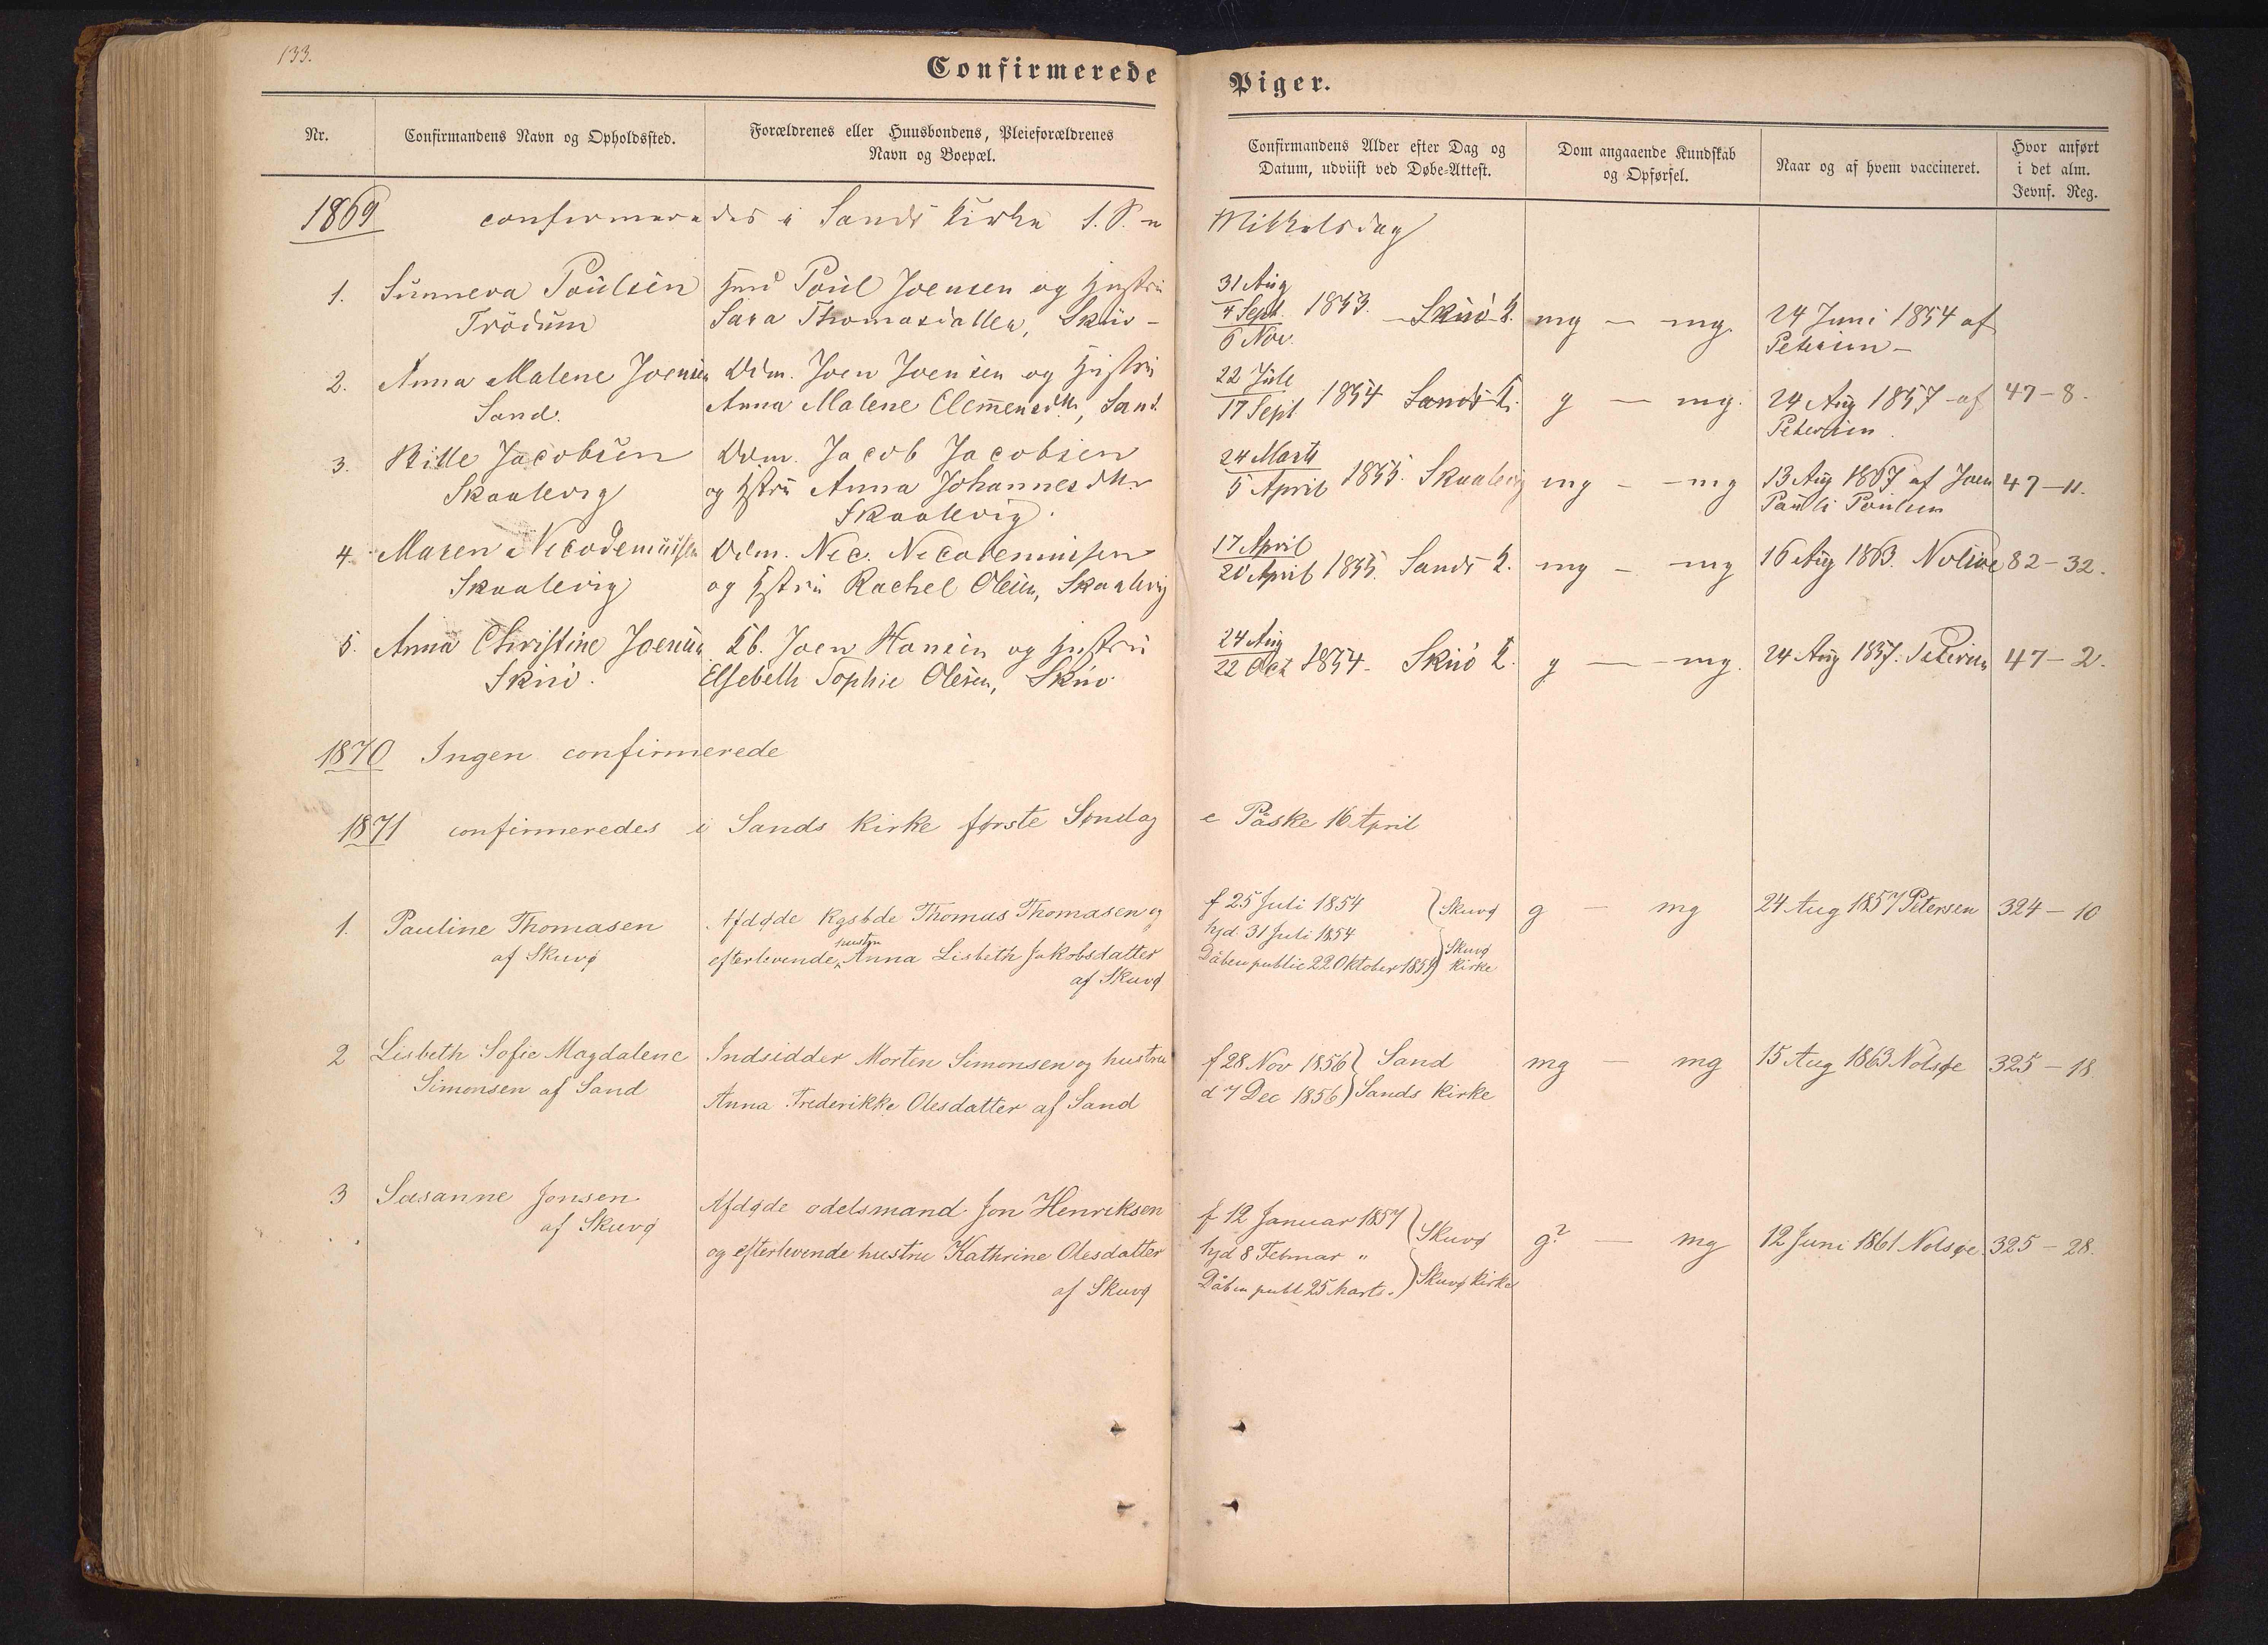 133.
Confirmerede Piger.
Nr.
Confirmandens Navn og Opholdssted.
Forældrenes eller Huusbondens, Pleieforældrenes
Navn og Boepæl.
Confirmandens Alder efter Dag og
Datum, udviist ved Døbe-Attest.
Dom angaaende Kundskab
og Opførsel.
Naar og af hvem vaccineret.
Hvor anført
i det alm.
Jevnf. Reg.
1869 confirmeredes i Sands Kirke 1. S. e Mikkelsdag
1. Sunneva Poulsen
Trödum
Poul Joensen og Hustru
Sara Thomasdatter, Skuö
31 Aug
4 Sept. 1853. Skuö K.
6 Nov.
mg — mg.
24 Juni 1854 af
Petersen
2. Anna Malene Joensen
Sand.
Odm. Joen Joensen og Hustru
Anna Malene Clemensdtr, Sand.
22 Juli
17 Sept 1854 Sands K.
g — mg.
24 Aug 1857 af
Petersen.
47-8.
3. Bille Jacobsen
Skaalevig
Odm. Jacob Jacobsen
og Hstru Anna Johannesdtr
Skaalevig.
24 Marts
5 April 1855. Skaalevig
mg — mg
13 Aug 1867 af Joen
Pauli Poulsen
47-11.
4. Maren Nicodemussen
Skaalevig
Odm. Nic. Nicodemussen
og Hstru Rachel Olsen, Skaalevig
17 April
20 April 1855. Sands K.
mg — mg
16 Aug 1863. Nolsøe
82-32.
5. Anna Christine Joensen
Skuö.
Kb. Joen Hansen og Hustru
Elsebeth Sophie Olesen, Skuö
24 Aug
22 Oct 1854. Skuö K.
g — mg.
24 Aug 1857. Petersen
47-2.
1870 Ingen confirmerede
1871 confirmeredes i Sands kirke første Søndag e Påske 16 April
1. Pauline Thomasen
af Skuvø
Afdøde kgsbde Thomas Thomasen og
efterlevende hustru Anna Lisbeth Jakobsdatter
af Skuvø
f 25 Juli 1854
hjd. 31 Juli 1854
Skuvø
Dåben public 22 Oktober 1854
Skuvø
kirke
g — mg
24 Aug 1857 Petersen
324-10
2 Lisbeth Sofie Magdalene
Simonsen af Sand
Indsidder Morten Simonsen og hustru
Anna Frederikke Olesdatter af Sand
f 28 Nov 1856 Sand
d 7 Dec 1856 Sands Kirke
mg — mg
15 Aug 1863 Nolsøe
325-18.
3 Susanne Jonsen
af Skuvø
Afdøde odelsmand Jon Henriksen
og efterlevende hustru Kathrine Olesdatter
af Skuvø
f 12 Januar 1857
hjd 8 Februar "
Skuvø
Dåben publ 25 Marts "
Skuvø kirke
g? — mg
12 Juni 1861 Nolsøe.
325-28.